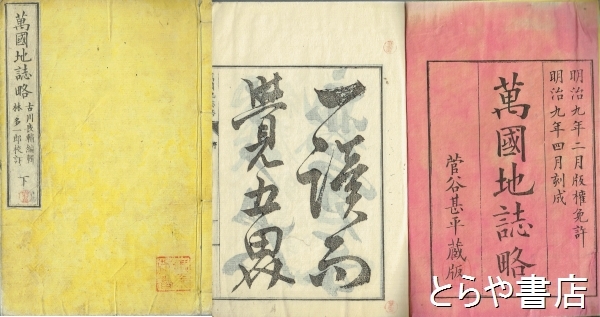 萬國地誌略
古川良輔編輯
林多一郎校訂
下
一讀而
覺五畏
明治九年二月版權免許
明治九年四月刻成
萬國地誌略
菅谷甚平藏版
とらや書店